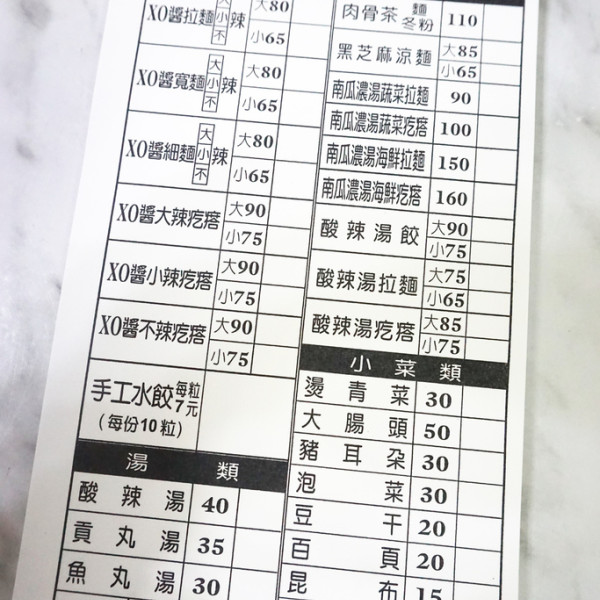 XO醬拉麵 大小不辣 大80
小65
XO醬寬麵 大小不辣 大80
小65
XO醬細麵 大小不辣 大80
小65
XO醬大辣疙瘩 大90
小75
XO醬小辣疙瘩 大90
小75
XO醬不辣疙瘩 大90
小75
手工水餃 每粒7元
(每份10粒)
湯類
酸辣湯 40
貢丸湯 35
魚丸湯 30
肉骨茶 麵 冬粉 110
黑芝麻涼麵 大85
小65
南瓜濃湯蔬菜拉麵 90
南瓜濃湯蔬菜疙瘩 100
南瓜濃湯海鮮拉麵 150
南瓜濃湯海鮮疙瘩 160
酸辣湯餃 大90
小75
酸辣湯拉麵 大75
小65
酸辣湯疙瘩 大85
小75
小菜類
燙青菜 30
大腸頭 50
豬耳朵 30
泡菜 30
豆干 20
百頁 20
昆布 15